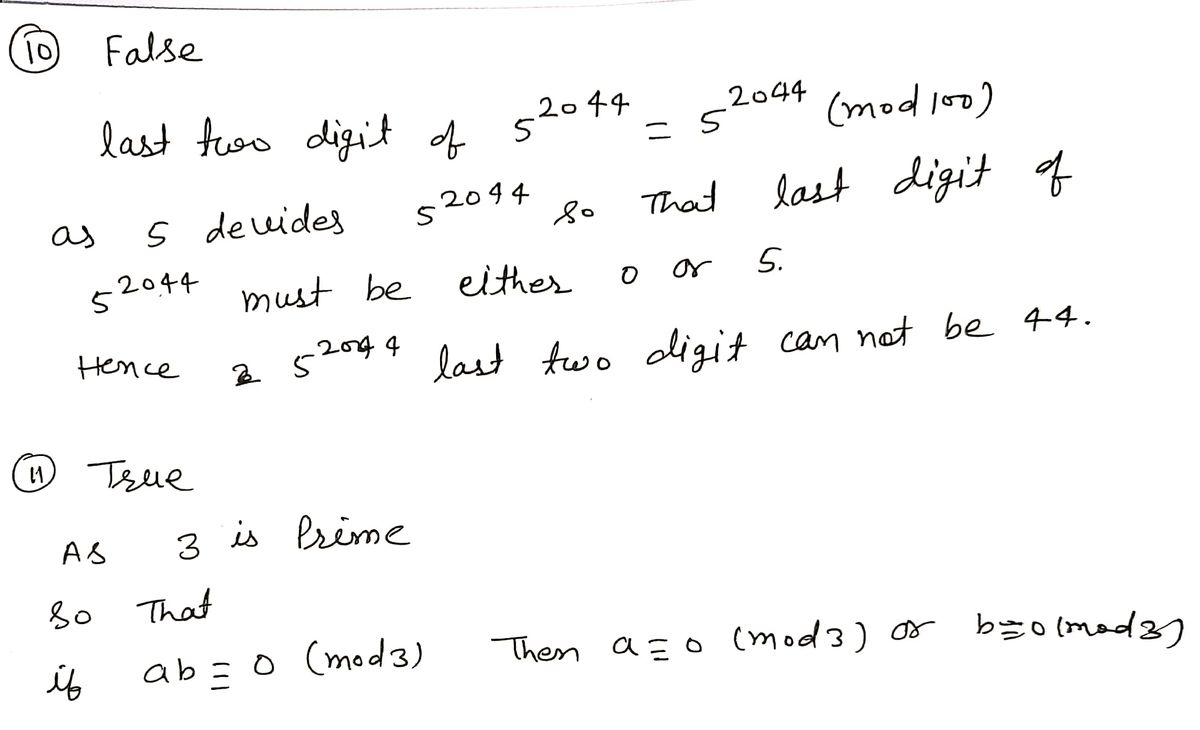 10 False
last two digit of 5^2044 = 5^2044 (mod 100)
as 5 devides 5^2044 so That last digit of
5^2044 must be either 0 or 5.
Hence 5^2044 last two digit can not be 44.
11 True
As 3 is Prime
so That
if ab ≡ 0 (mod 3) Then a ≡ 0 (mod 3) or b ≡ 0 (mod 3)